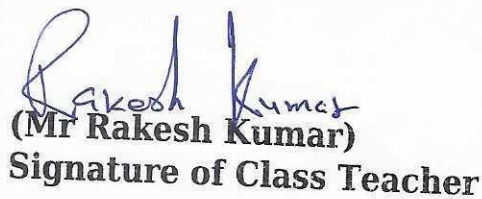 Rakesh Kumar
(Mr Rakesh Kumar)
Signature of Class Teacher